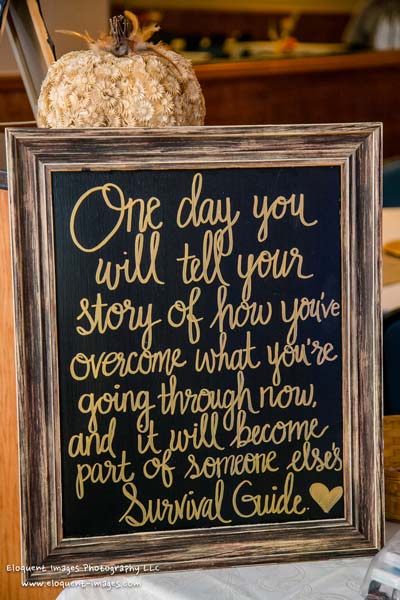 One day you
will tell your
story of how you've
overcome what you're
going through now,
and it will become
part of someone else's
Survival Guide.
Eloquent Images Photography LLC
www.eloquent-images.com